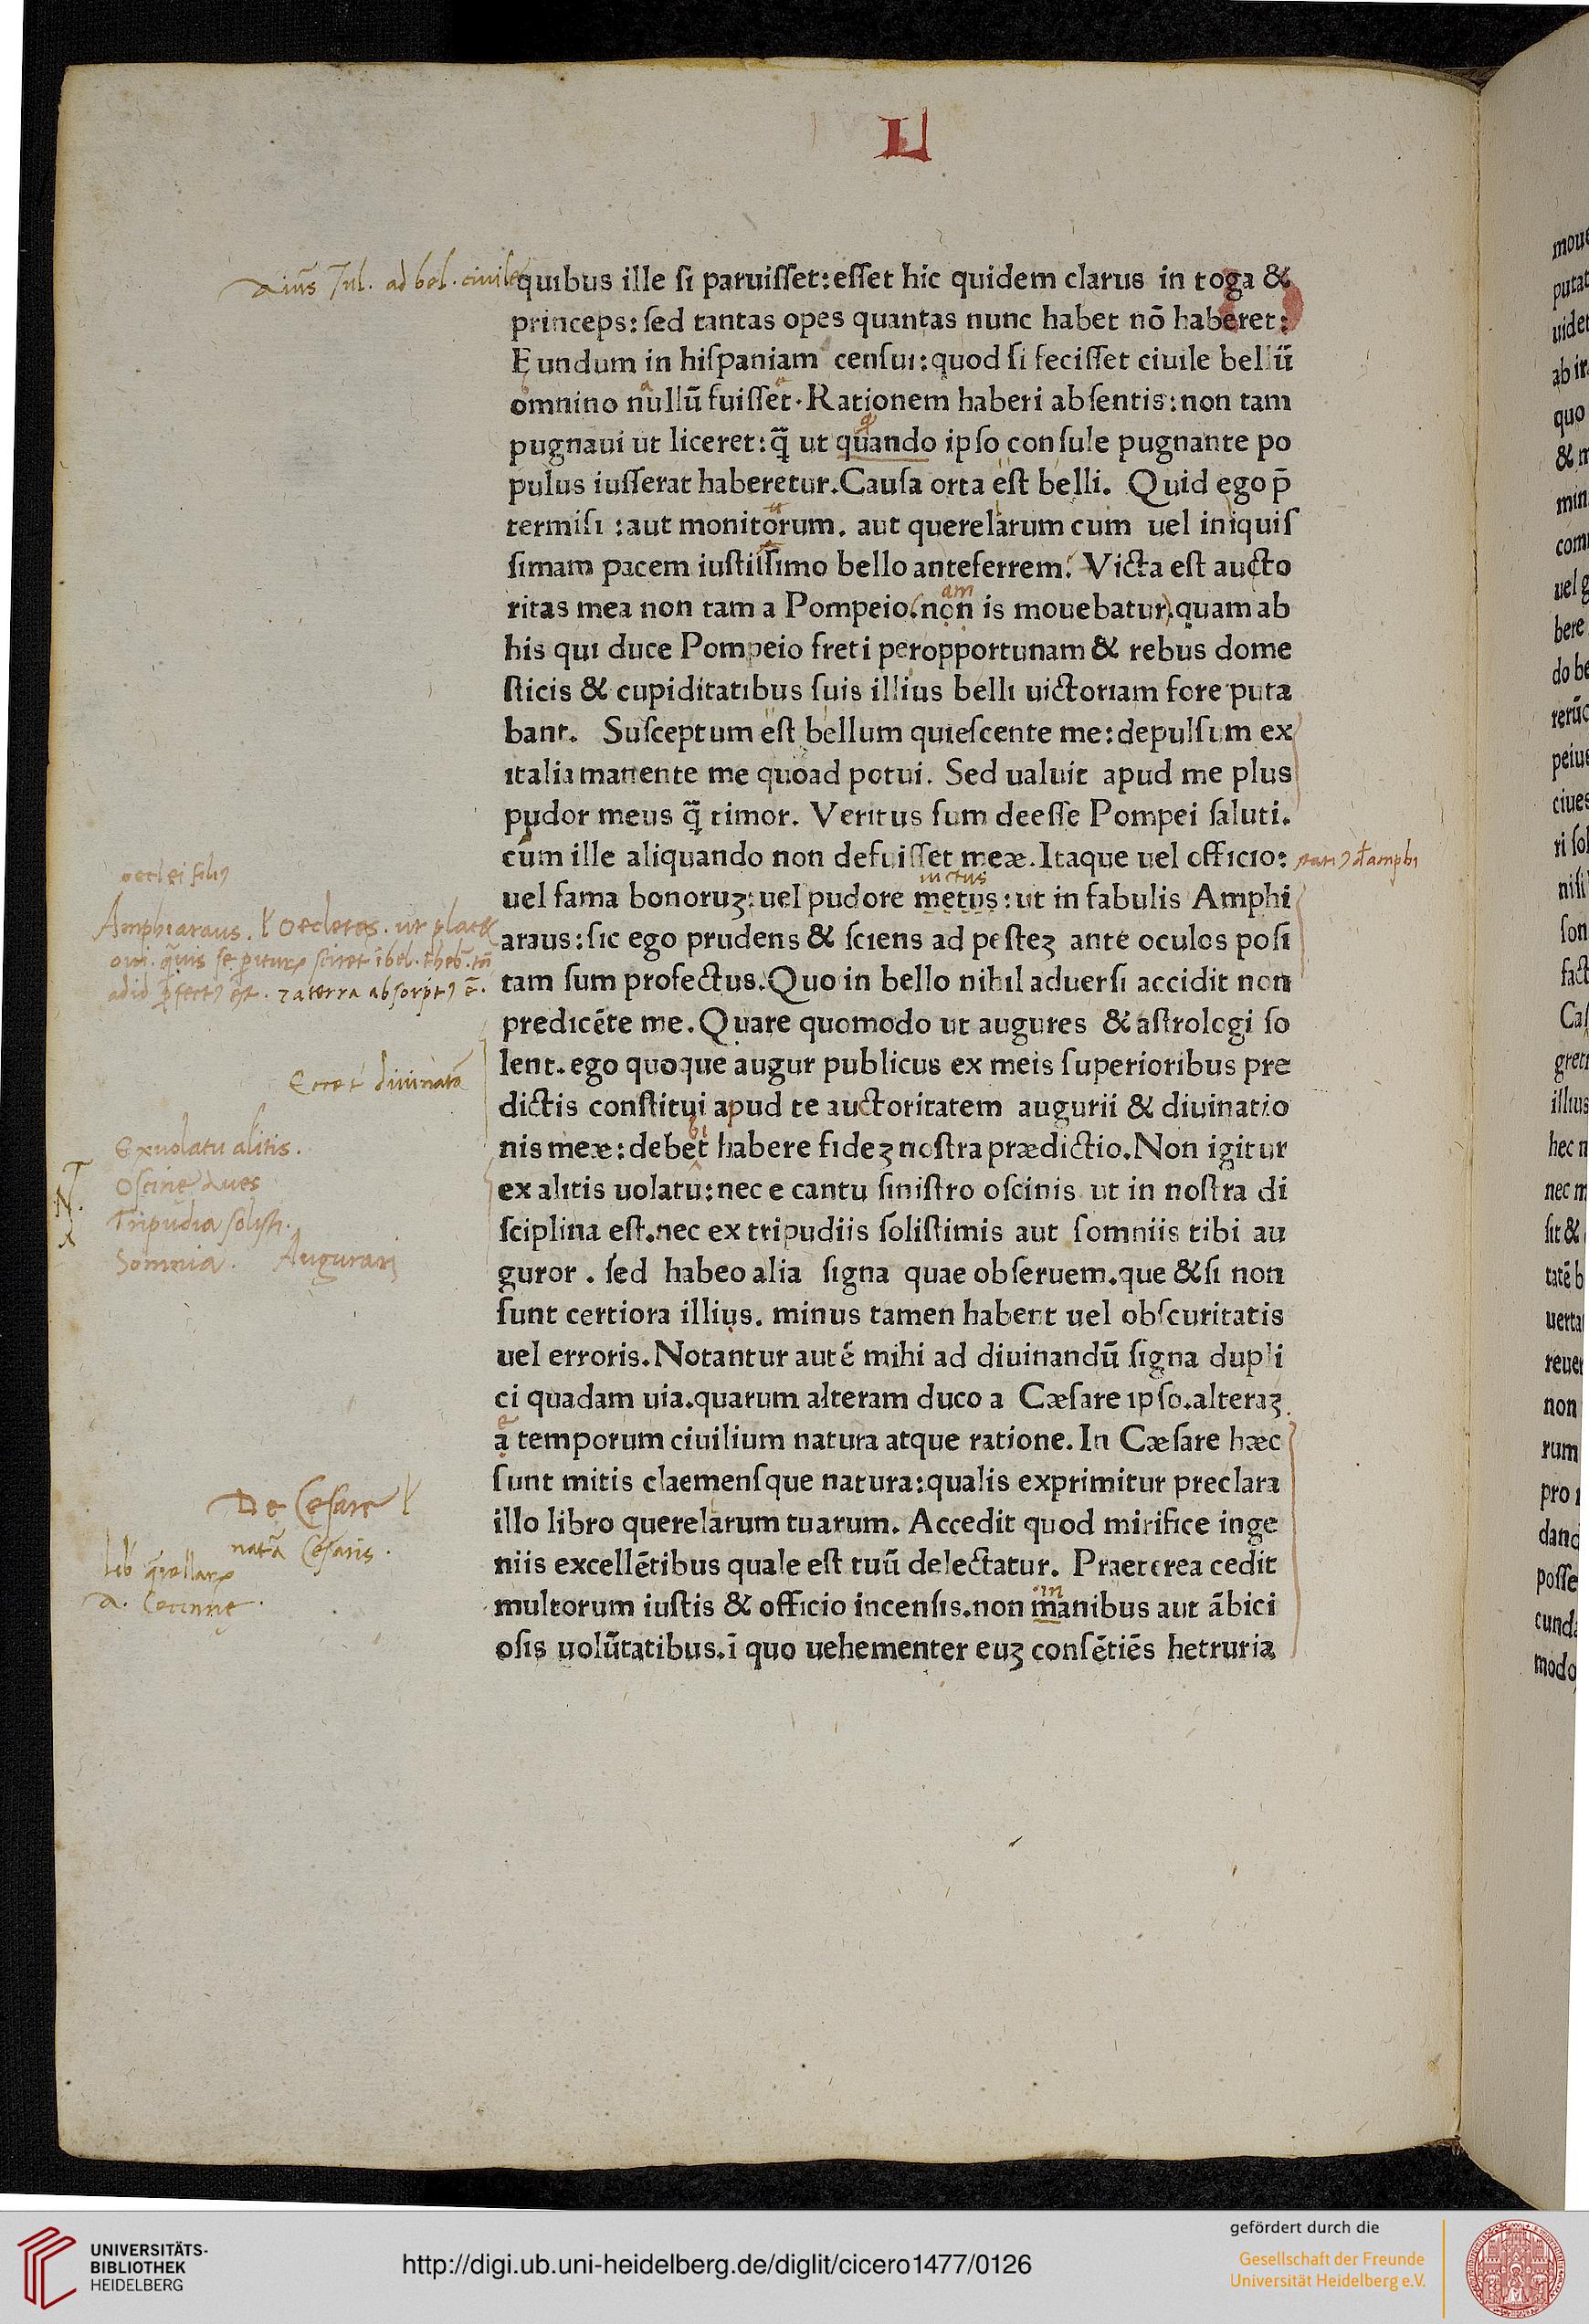 L
quibus ille ſi paruiſſet: eſſet hic quidem clarus in toga &
princeps: ſed tantas opes quantas nunc habet nō haberet:
Eundum in hiſpaniam cenſui: quod ſi feciſſet ciuile bellū
omnino nullū fuiſſet. Rationem haberi abſentis: non tam
pugnaui ut liceret: q̄ ut quando ipſo conſule pugnante po
pulus iuſſerat haberetur. Cauſa orta eſt belli. Quid ego p̄
termiſi: aut monitorum. aut querelarum cum uel iniquiſ
ſimam pacem iuſtiſſimo bello anteferrem. Victa eſt aucto
am
ritas mea non tam a Pompeio. non is mouebatur. quam ab
his qui duce Pompeio freti peropportunam & rebus dome
ſticis & cupiditatibus ſuis illius belli uictoriam fore puta
bant. Suſceptum eſt bellum quieſcente me: depulſum ex
italia manente me quoad potui. Sed ualuit apud me plus
pudor meus q̄ timor. Veritus ſum deeſſe Pompei ſaluti.
cum ille aliquando non defuiſſet meæ. Itaque uel officio:
uictus
uel fama bonoruꝫ: uel pudore metus: ut in fabulis Amphi
araus: ſic ego prudens & ſciens ad peſteꝫ ante oculos poſi
tam ſum profectus. Quo in bello nihil aduerſi accidit non
predicēte me. Quare quomodo ut augures & aſtrologi ſo
lent. ego quoque augur publicus ex meis ſuperioribus pre
dictis conſtitui apud te auctoritatem augurii & diuinatio
nis meæ: debet habere fideꝫ noſtra prædictio. Non igitur
ex alitis uolatu: nec e cantu ſiniſtro oſcinis ut in noſtra di
ſciplina eſt. nec ex tripudiis ſoliſtimis aut ſomniis tibi au
guror. ſed habeo alia ſigna quae obſeruem. que & ſi non
ſunt certiora illius. minus tamen habent uel obſcuritatis
uel erroris. Notantur autē mihi ad diuinandū ſigna dupli
ci quadam uia. quarum alteram duco a Cæſare ipſo. alteraꝫ
a temporum ciuilium natura atque ratione. In Cæſare hæc
ſunt mitis claemenſque natura: qualis exprimitur preclara
illo libro querelarum tuarum. Accedit quod mirifice inge
niis excellētibus quale eſt tuū delectatur. Praeterea cedit
in
multorum iuſtis & officio incenſis. non manibus aut ābici
oſis uolūtatibus. ī quo uehementer euꝫ conſētiēs hetruria
Jul. ad bel. ciuile
Amphiaraus.
Exuolatu alitis.
Oſcine aues
Tripudia ſoliſti.
Somnia. Augurari
De Ceſare
natā Ceſaris.
UNIVERSITÄTS-
BIBLIOTHEK
HEIDELBERG
http://digi.ub.uni-heidelberg.de/diglit/cicero1477/0126
gefördert durch die
Gesellschaft der Freunde
Universität Heidelberg e.V.